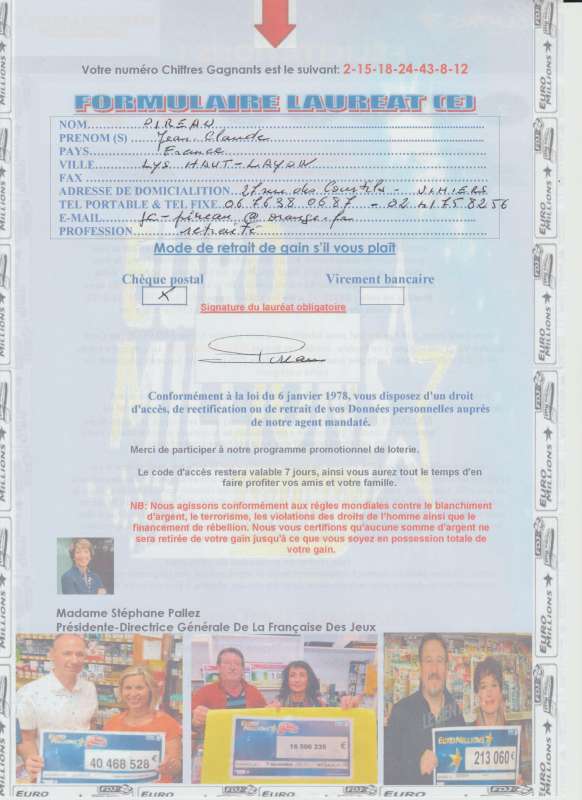 Votre numéro Chiffres Gagnants est le suivant: 2-15-18-24-43-8-12
FORMULAIRE LAUREAT (E)
NOM PIREAU
PRENOM (S) Jean Claude
PAYS France
VILLE LYS HAUT-LAYON
FAX
ADRESSE DE DOMICIALITION 27 rue des - VIHIERS
TEL PORTABLE & TEL FIXE 06 76 38 06 87 - 02 41 75 82 56
E-MAIL jc-pireau@orange.fr
PROFESSION retraité
Mode de retrait de gain s'il vous plaît
Chèque postal Virement bancaire
X
Signature du lauréat obligatoire
Conformément à la loi du 6 janvier 1978, vous disposez d'un droit
d'accès, de rectification ou de retrait de vos Données personnelles auprés
de notre agent mandaté.
Merci de participer à notre programme promotionnel de loterie.
Le code d'accès restera valable 7 jours, ainsi vous aurez tout le temps d'en
faire profiter vos amis et votre famille.
NB: Nous agissons conformément aux régles mondiales contre le blanchiment
d'argent, le terrorisme, les violations des droits de l'homme ainsi que le
financement de rébellion. Nous vous certifions qu'aucune somme d'argent ne
sera retirée de votre gain jusqu'à ce que vous soyez en possession totale de
votre gain.
Madame Stéphane Pallez
Présidente-Directrice Générale De La Française Des Jeux
40 468 528 €
€
213 060 €
EURO MILLIONS
FDJ